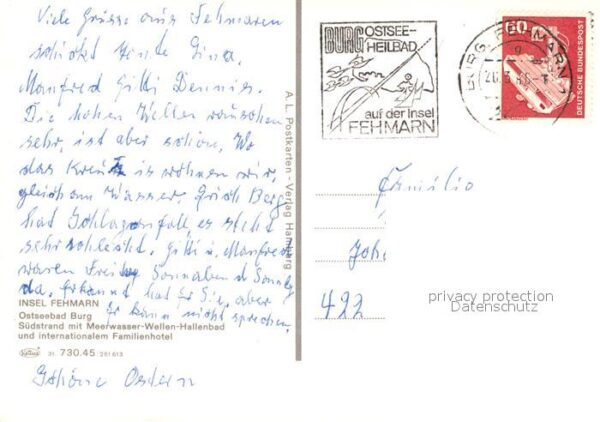 Viele Grüsse aus Fehmarn
schickt Heute Gina.
Manfred Gitti Dennis.
Die hohen Wellen rauschen
sehr, ist aber schön, Wo
das Kreuz is wohnen wir,
gleich am Wasser. Berg
hat Schlaganfall, es steht
sehr schlecht. Gitti u. Manfred
waren Freitag Sonnabend Sonntag
da. Erkannt hat Er Sie, aber
Er kann nicht sprechen.
INSEL FEHMARN
Ostseebad Burg
Südstrand mit Meerwasser-Wellen-Hallenbad
und internationalem Familienhotel
31 730.45 251 613
Schöne Ostern
A. L. Postkarten-Verlag Hamburg
BURG OSTSEE-
HEILBAD
auf der Insel
FEHMARN
BURG, FEHMARN 1
60
DEUTSCHE BUNDESPOST
Familie
Joh
422
privacy protection
Datenschutz